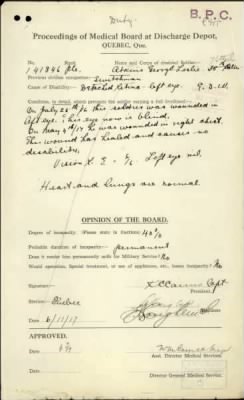 Duty
B. P. C.
Proceedings of Medical Board at Discharge Depot
QUEBEC, Que.
No. Rank Name and Corps of disabled Soldier
141946 Pte. Atkins George Leslie
Previous civilian occupation
Cause of Disability: Detached Retina - left eye. G.S.W.
Condition in detail which prevents the soldier earning a full livelihood:
On July 26th/16 this soldier was wounded in
left eye. This eye now is blind.
On May 4th/17 he was wounded in right chest.
This wound has healed and causes no
disability.
Vision R. E - Left eye nil.
Heart and lungs are normal
OPINION OF THE BOARD.
Degree of incapacity: (Please state in fractions) 40%
Probable duration of incapacity: permanent
Does it render him permanently unfit for Military Service? No
Would operation, Special treatment, or use of appliances, etc., lessen incapacity? No
Signature: Capt
President.
Station Quebec
Members
Date 6/11/17
APPROVED.
Date
Asst. Director Medical Services.
Date
Director General Medical Service.